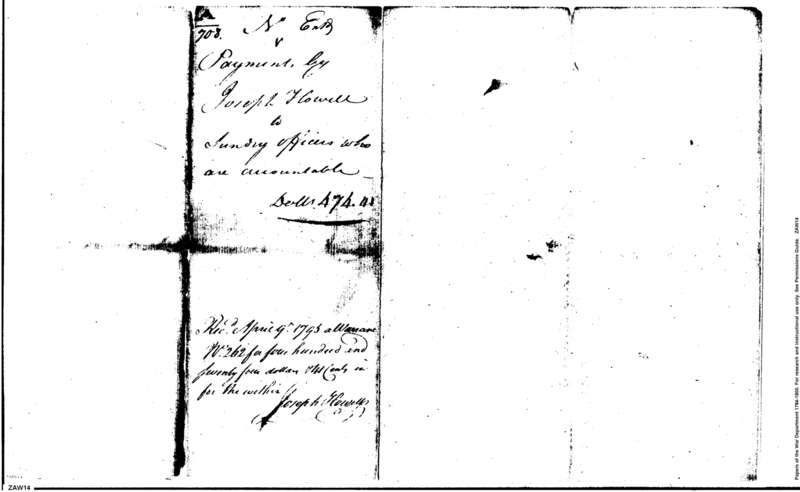 A
708. No Entd
Payments by
Joseph Howell
to
Sundry officers who
are accountable
Dolls. 474.41
Rec.d April 9th 1793 a Warrant
No. 262 for four hundred and
seventy four dollars Cents in
for the within
Joseph Howell
ZAW14
Papers of the War Department 1784-1800. For research and instructional use only. See Permissions Guide. ZAW14